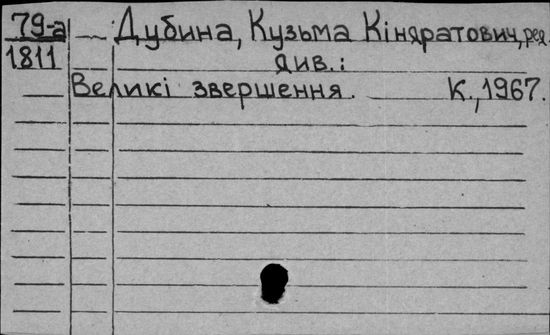 79-а Дубина, Кузьма Кіндратович, ред.
1811 див.:
Великі звершення. К., 1967.